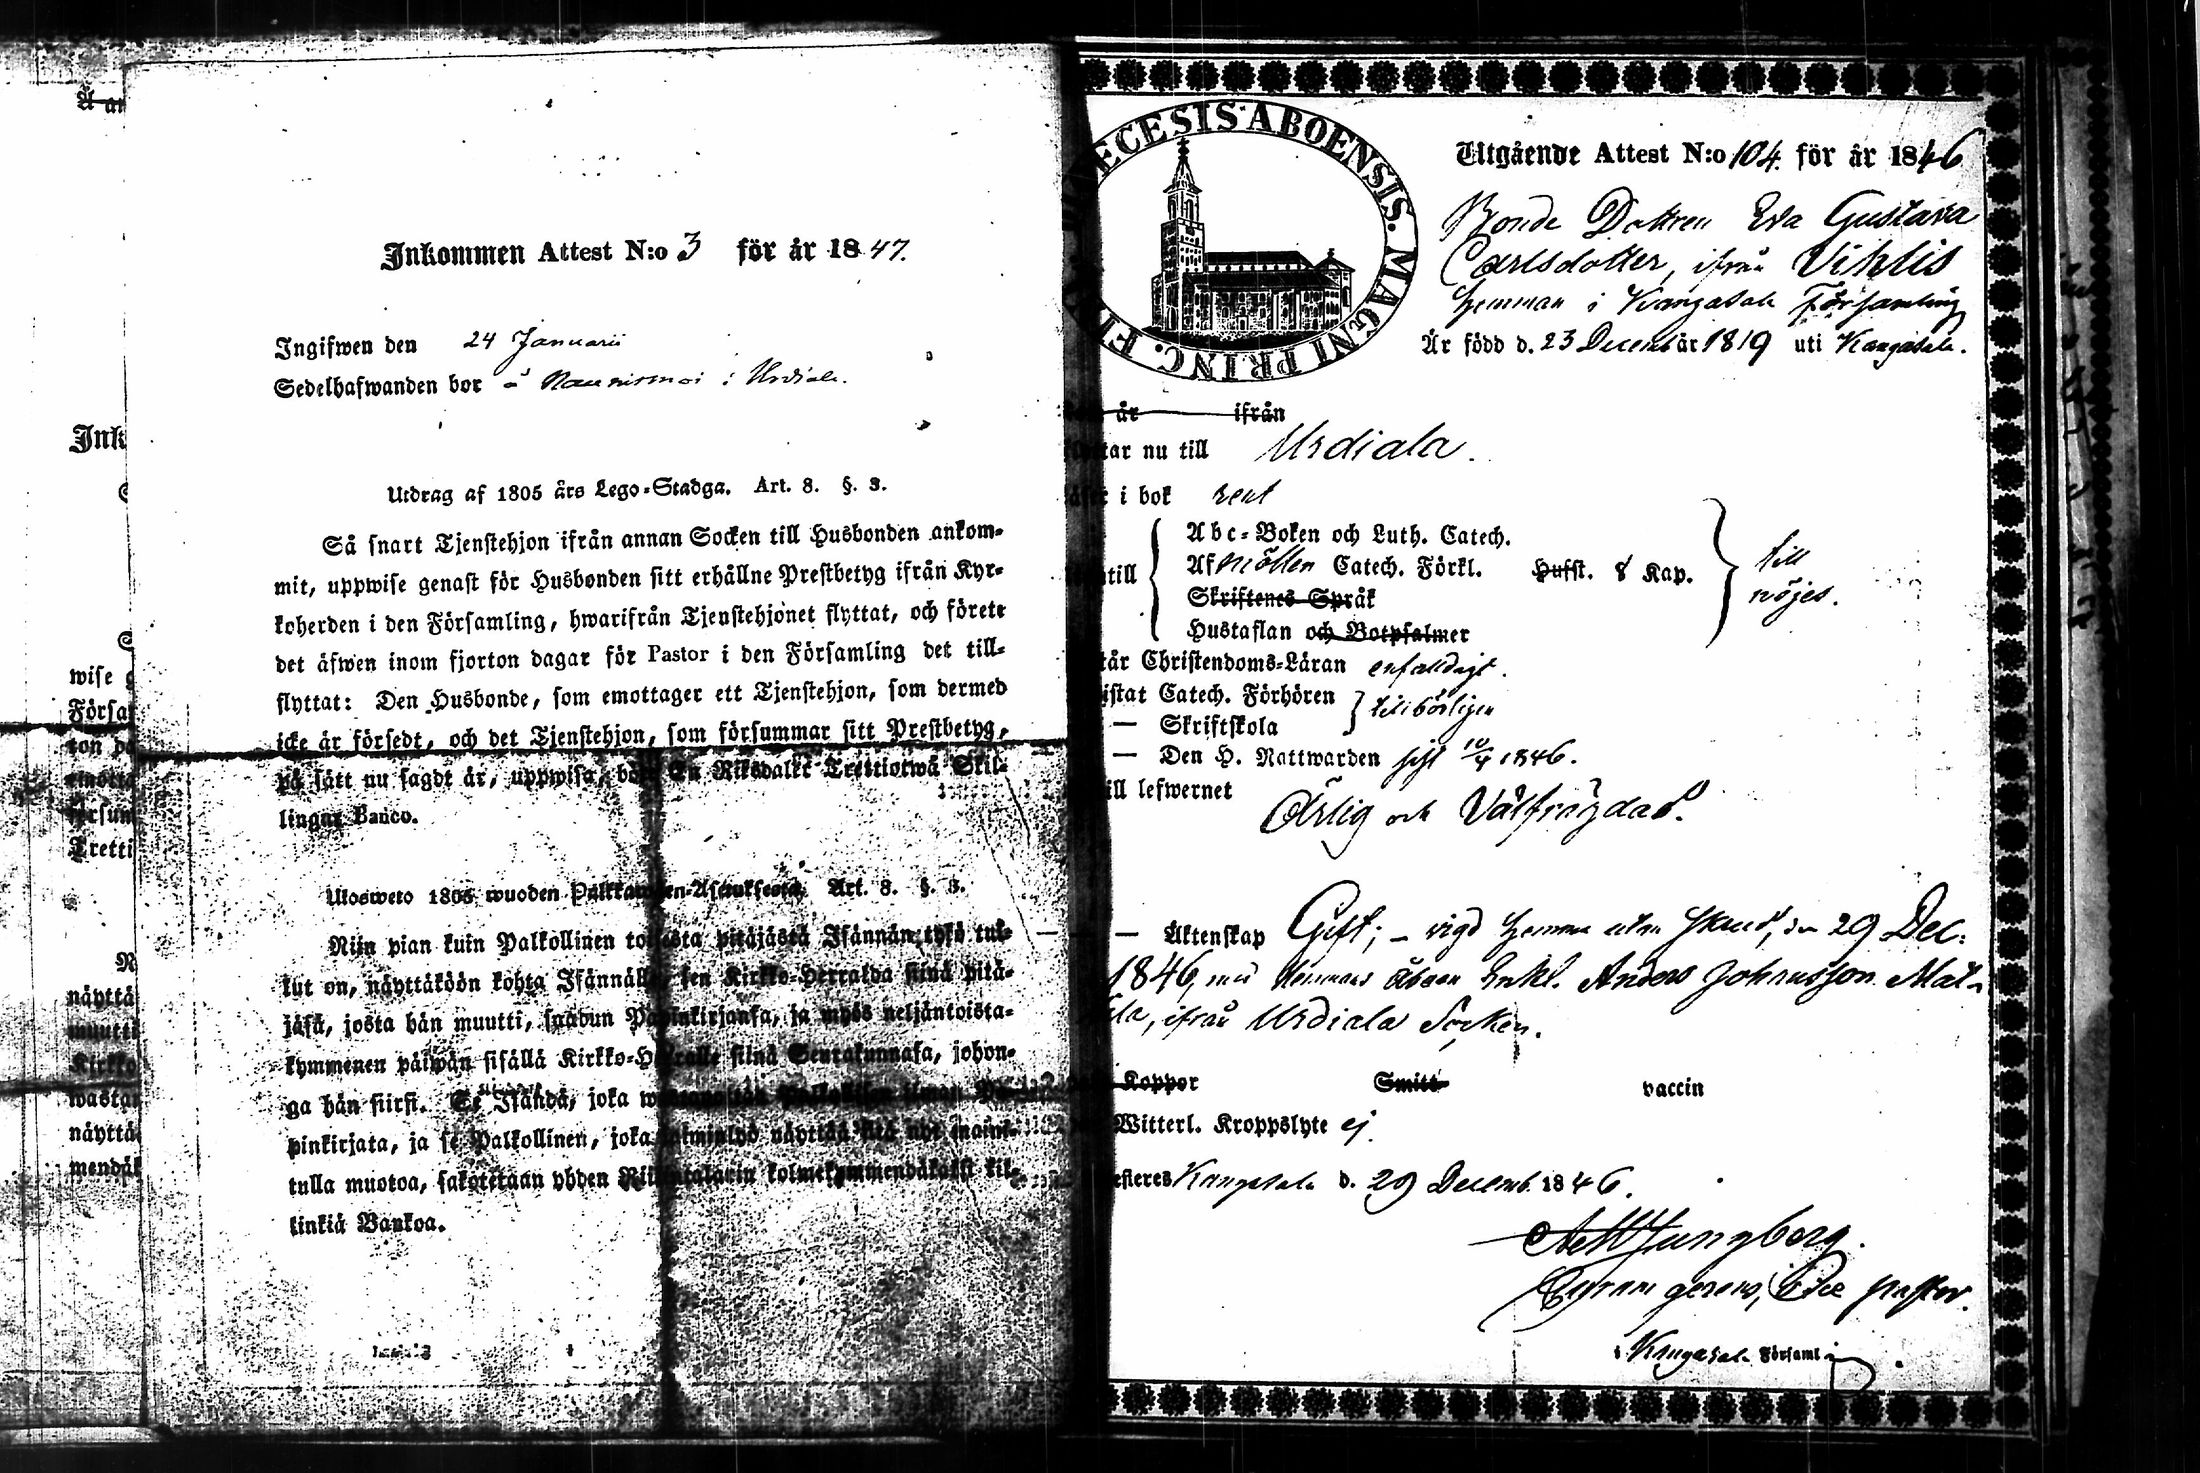 Å an
Ink
S
S
wise g
Försam
ton da
emotta
försum
Tretti
N
näyttä
muutti
Kirkko
wastan
näyttä
mendäk
Inkommen Attest N:o 3 för år 1847.
Ingifwen den 24 Januarii
Sedelhafwanden bor å i Urdiala.
Utdrag af 1805 års Lego-Stadga. Art. 8. §. 3.
Så snart Tjenstehjon ifrån annan Socken till Husbonden ankom-
mit, uppwise genast för Husbonden sitt erhållne Prestbetyg ifrån Kyr-
koherden i den Församling, hwarifrån Tjenstehjonet flyttat, och förete
det äfwen inom fjorton dagar för Pastor i den Församling det till-
flyttat: Den Husbonde, som emottager ett Tjenstehjon, som dermed
icke är försedt, och det Tjenstehjon, som försummar sitt Prestbetyg,
på sätt nu sagdt är, uppwisa, böte En Riksdaler Trettiotwå Skil-
lingar Banco.
Ulosweto 1805 wuoden Palkkawäen-Asetuksesta. Art. 8. §. 3.
Niin pian kuin Palkollinen toisesta pitäjästä Isännän tykö tul-
lut on, näyttäköön kohta Isännälle, sen Kirkko-Herralda siinä pitä-
jäsä, josta hän muutti, saadun Papinkirjansa, ja myös neljäntoista-
kymmenen päiwän sisällä Kirkko-Herralle siinä Seurakunnasa, johon-
ga hän siirsi. Se Isändä, joka wastanottaa Palkollisen ilman Pa-
pinkirjata, ja se Palkollinen, joka laiminlyö näyttää sitä nyt maini-
tulla muotoa, sakotetaan yhden Riksintalarin kolmekymmendäkaksi kil-
linkiä Bankoa.
ECESIS ABOENSIS. MAGNI PRINC. FI
Utgående Attest N:o 104. för år 1846
Bonde Dottren Eva Gustava
Carlsdotter, ifrån Vihtis
hemman i Kangasala Församling
Är född d. 23 Decemb år 1819 uti Kangasala.
år ifrån
tar nu till Urdiala.
i bok rent
Abc-Boken och Luth. Catech.
till Af Möllers Catech. Förkl. Husst. 8 Kap. till
nöjes.
Skriftenes Språk
Hustaflan och Botpsalmer
tår Christendoms-Läran enfaldigt.
istat Catech. Förhören tillbörligen
— Skriftskola
— Den H. Nattwarden sist 10/4 1846.
ill lefwernet Ärlig och Välfrägdad.
— Äktenskap Gift; – vigd hemma utan den 29 Dec:
1846, med Hemmans Åboen Enkl. Anders Johansson Mat-
ila, ifrån Urdiala Socken.
Koppor Smitt vaccin
Witterl. Kroppslyte ej.
esteres Kangasala d. 29 Decemb. 1846.
Ljungberg.
gerens, Vice pastor.
i Kangasala Församl